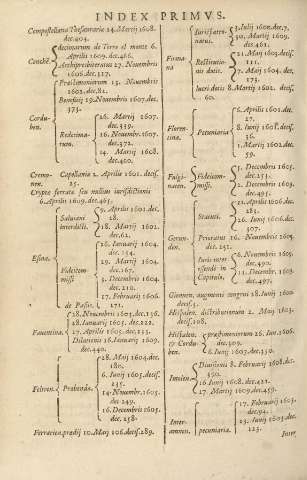 INDEX PRIMVS.
Compostellana Thesaurariæ 14. Martij 1608.
dec. 404.
Conchē.
decimarum de Terra el monte 6.
Aprilis 1609. dec. 466.
Archipresbiteratus 27. Nouembris
1606. dec. 317.
Cordu-
ben.
Præeminentiarum 15. Nouembris
1602. dec. 81.
Beneficij 29. Nouembris 1607. dec.
373.
Redecima-
rum.
26. Martij 1607.
dec. 339.
16. Nouembr. 1607.
dec. 372.
14. Martij 1608.
dec. 400.
Cremo-
nen.
Capellania 2. Aprilis 1601. decis.
25.
Cryptæ ferratæ seu nullius iurisdictionis
6. Aprilis 1609. dec. 465.
Esina.
Saluiani
interdicti.
9. Aprilis 1601. dec.
28.
18. Martij 1602.
dec. 62.
Fideicom
missi
26. Ianuarij 1604.
dec. 154.
29. Martij 1604.
dec. 167.
3. Decembris 1604.
dec. 210.
17. Februarij 1606.
de Passis. 271.
Fauentina.
28. Nouembris 1603. dec. 136.
28. Ianuarij 1605. dec. 222.
27. Aprilis 1605. dec. 235.
Dilationis 16. Ianuarij 1609.
dec. 440.
Feltren.
Probenda.
28. Maij 1604. dec.
180.
6. Iunij 1605. decis.
235.
14. Nouembr. 1605.
dec. 249.
16. Decembris 1605.
dec. 258.
Ferrarien. prædij 10. Maij 1606. decis. 289.
Firma-
na
Iurispatro-
natus.
3. Iulij 1600. dec. 7.
30. Martij 1609.
dec. 461.
Restitutio-
nis dotis.
21. Maij 1603. decis.
111.
7. Maij 1604. dec.
173.
lucri dotis 8. Martij 1602. decis.
60.
Floren-
tina.
Pecuniaria
6. Aprilis 1601. dec.
27.
8. Iunij 1601. decis.
36.
1. Martij 1602. dec.
59.
Fulgi-
naten.
Fideicom-
missi.
1. Decembris 1603.
2. Decembris 1605.
dec. 495.
Gerun-
den.
Statuti.
21. Aprilis 1606. dec.
283.
26. Iunij 1606. dec.
307.
Prioratus 16. Nouembris 1605.
dec. 251.
Iuris inter
essendi in
Capitulo.
16. Nouembris 1605.
dec. 490.
11. Decembr. 1603.
dec. 497.
Giennen. augmenti congrui 18. Iunij 1600.
dec. 3.
Hispalen. distributionum 2. Maij 1603.
decis. 108.
Hispalen.
& Cordu
ben.
præeminentiarum 26. Ian. 1606.
6. Iunij 1607. dec. 350.
Imolen.
Diuisionis 8. Februarij 1608. dec.
390.
16. Iunij 1608. dec. 421.
27. Martij 1609. dec. 459.
Inter-
amnen.
pecuniaria
17. Februarij 1603.
dec. 94.
23. Iunij 1603. dec.
123.
Inter